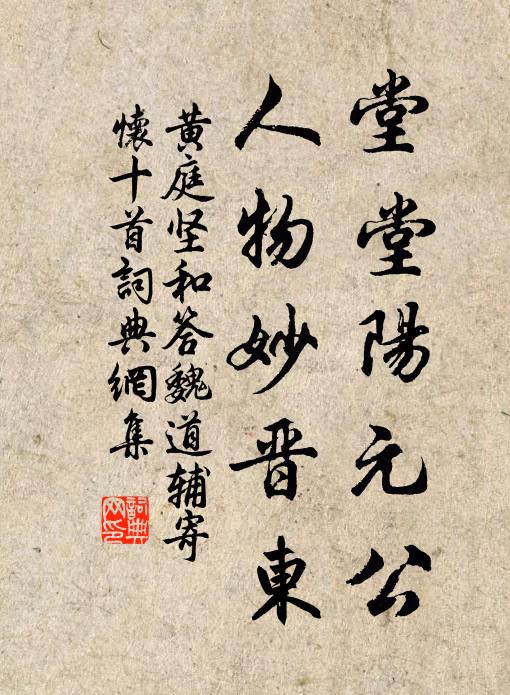 堂堂陽元公
人物妙晋東
黄庭坚和答魏道辅寄
懷十首詞典網集
詞典
网印